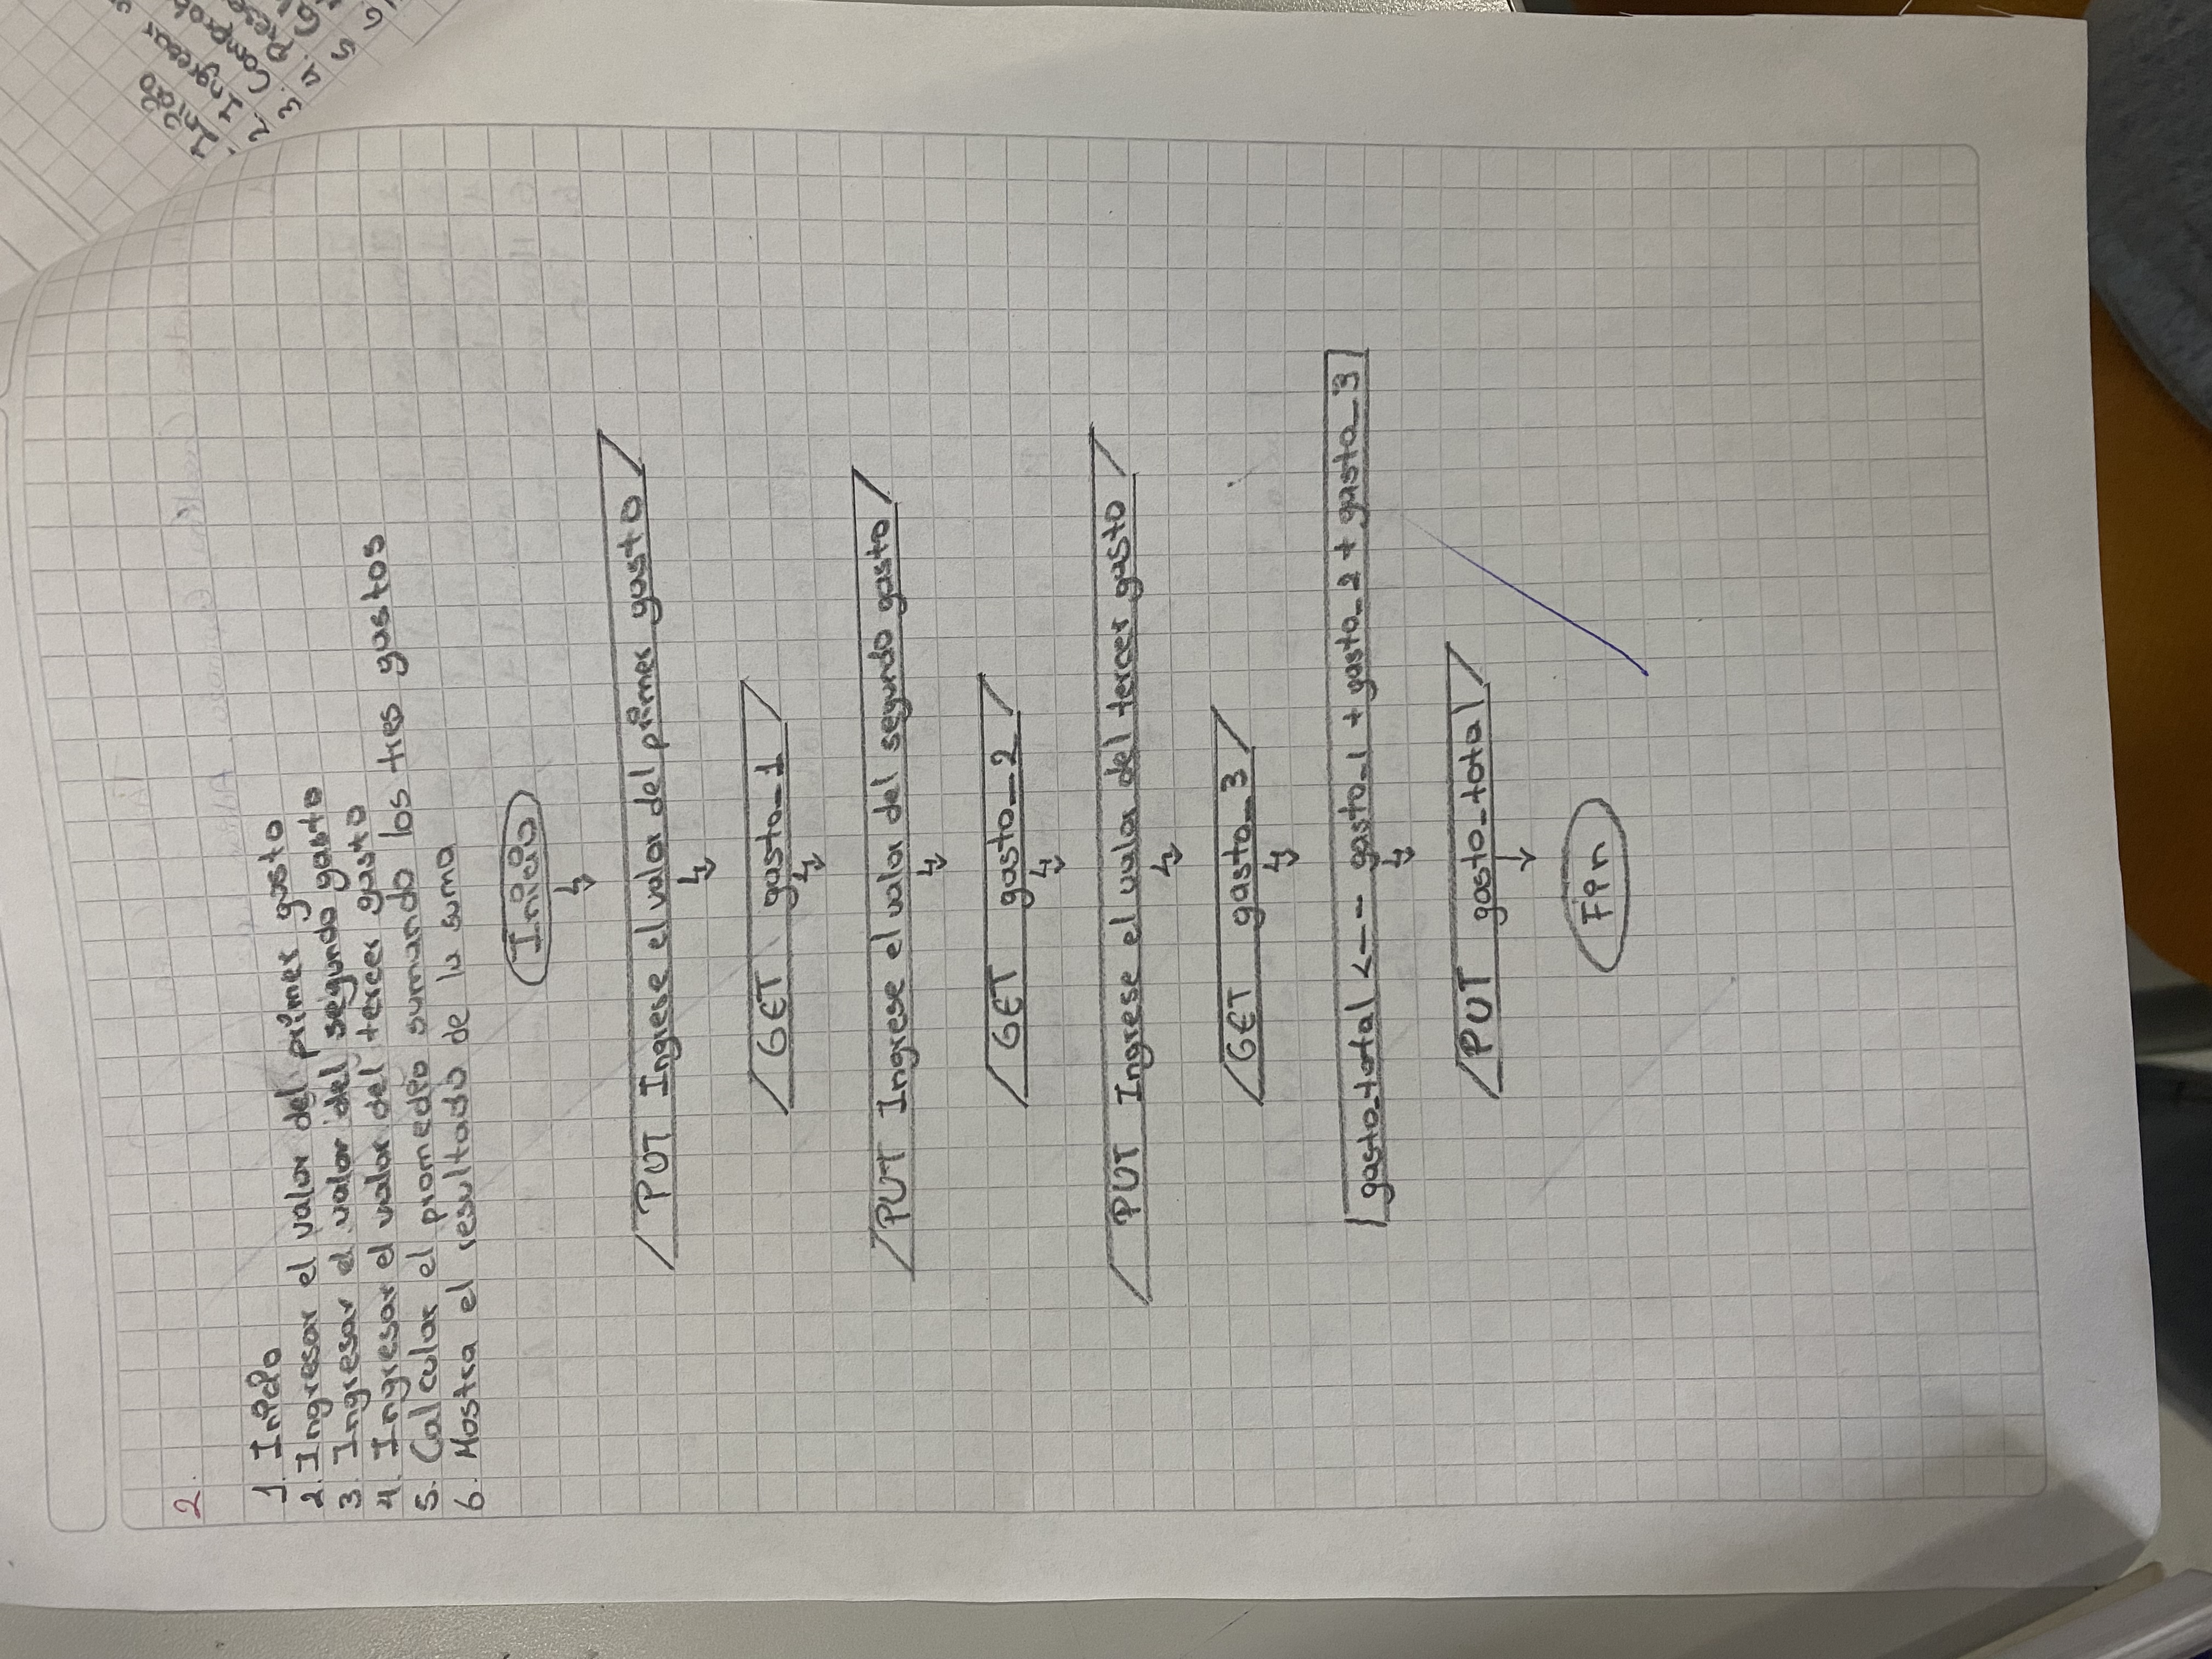 2.
1. Inicio
2. Ingresar el valor del primer gasto
3. Ingresar el valor del segundo gasto
4. Ingresar el valor del tercer gasto
5. Calcular el promedio sumando los tres gastos
6. Mostra el resultado de la suma
Inicio
PUT Ingrese el valor del primer gasto
GET gasto_1
PUT Ingrese el valor del segundo gasto
GET gasto_2
PUT Ingrese el valor del tercer gasto
GET gasto_3
gasto_total <-- gasto_1 + gasto_2 + gasto_3
PUT gasto_total
Fin
Inicio
2. Ingresar
3.
4.
5
6